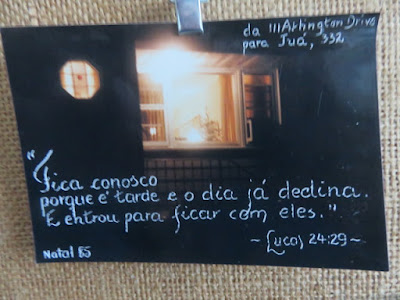 da 111 Arlington Drive
para Juá, 332
"Fica conosco
porque é tarde e o dia já declina.
E entrou para ficar com eles."
~ Lucas 24:29 ~
Natal 85